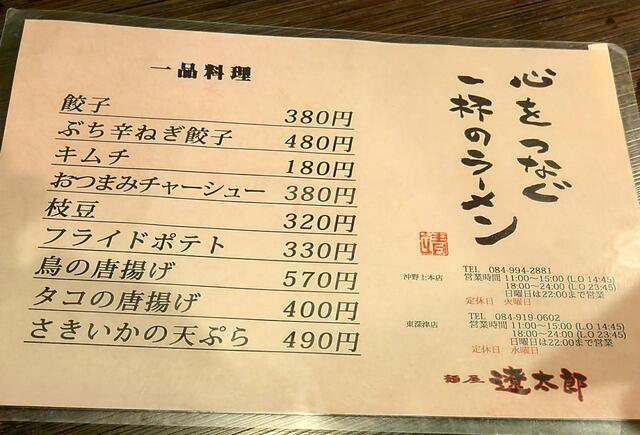 一品料理
餃子 380円
ぶち辛ねぎ餃子 480円
キムチ 180円
おつまみチャーシュー 380円
枝豆 320円
フライドポテト 330円
鳥の唐揚げ 570円
タコの唐揚げ 400円
さきいかの天ぷら 490円
心をつなぐ
一杯のラーメン
沖野上本店
TEL 084-994-2881
営業時間 11:00～15:00 (L.O 14:45)
18:00～24:00 (L.O 23:45)
日曜日は22:00まで営業
定休日 火曜日
東深津店
TEL 084-919-0602
営業時間 11:00～15:00 (L.O 14:45)
18:00～24:00 (L.O 23:45)
日曜日は22:00まで営業
定休日 水曜日
麺屋 遼太郎